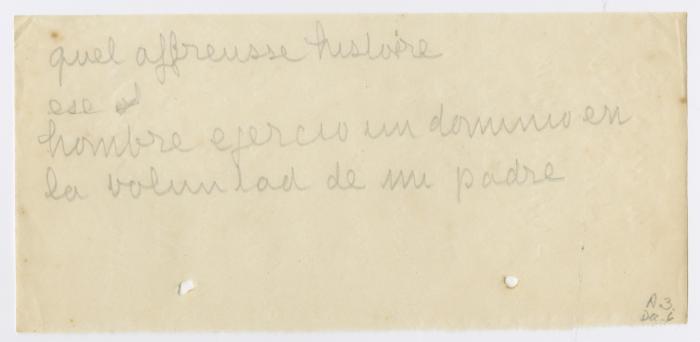 quel affreusse histoire
ese
hombre ejercio un dominio en
la voluntad de mi padre
A.3.
Do. 6